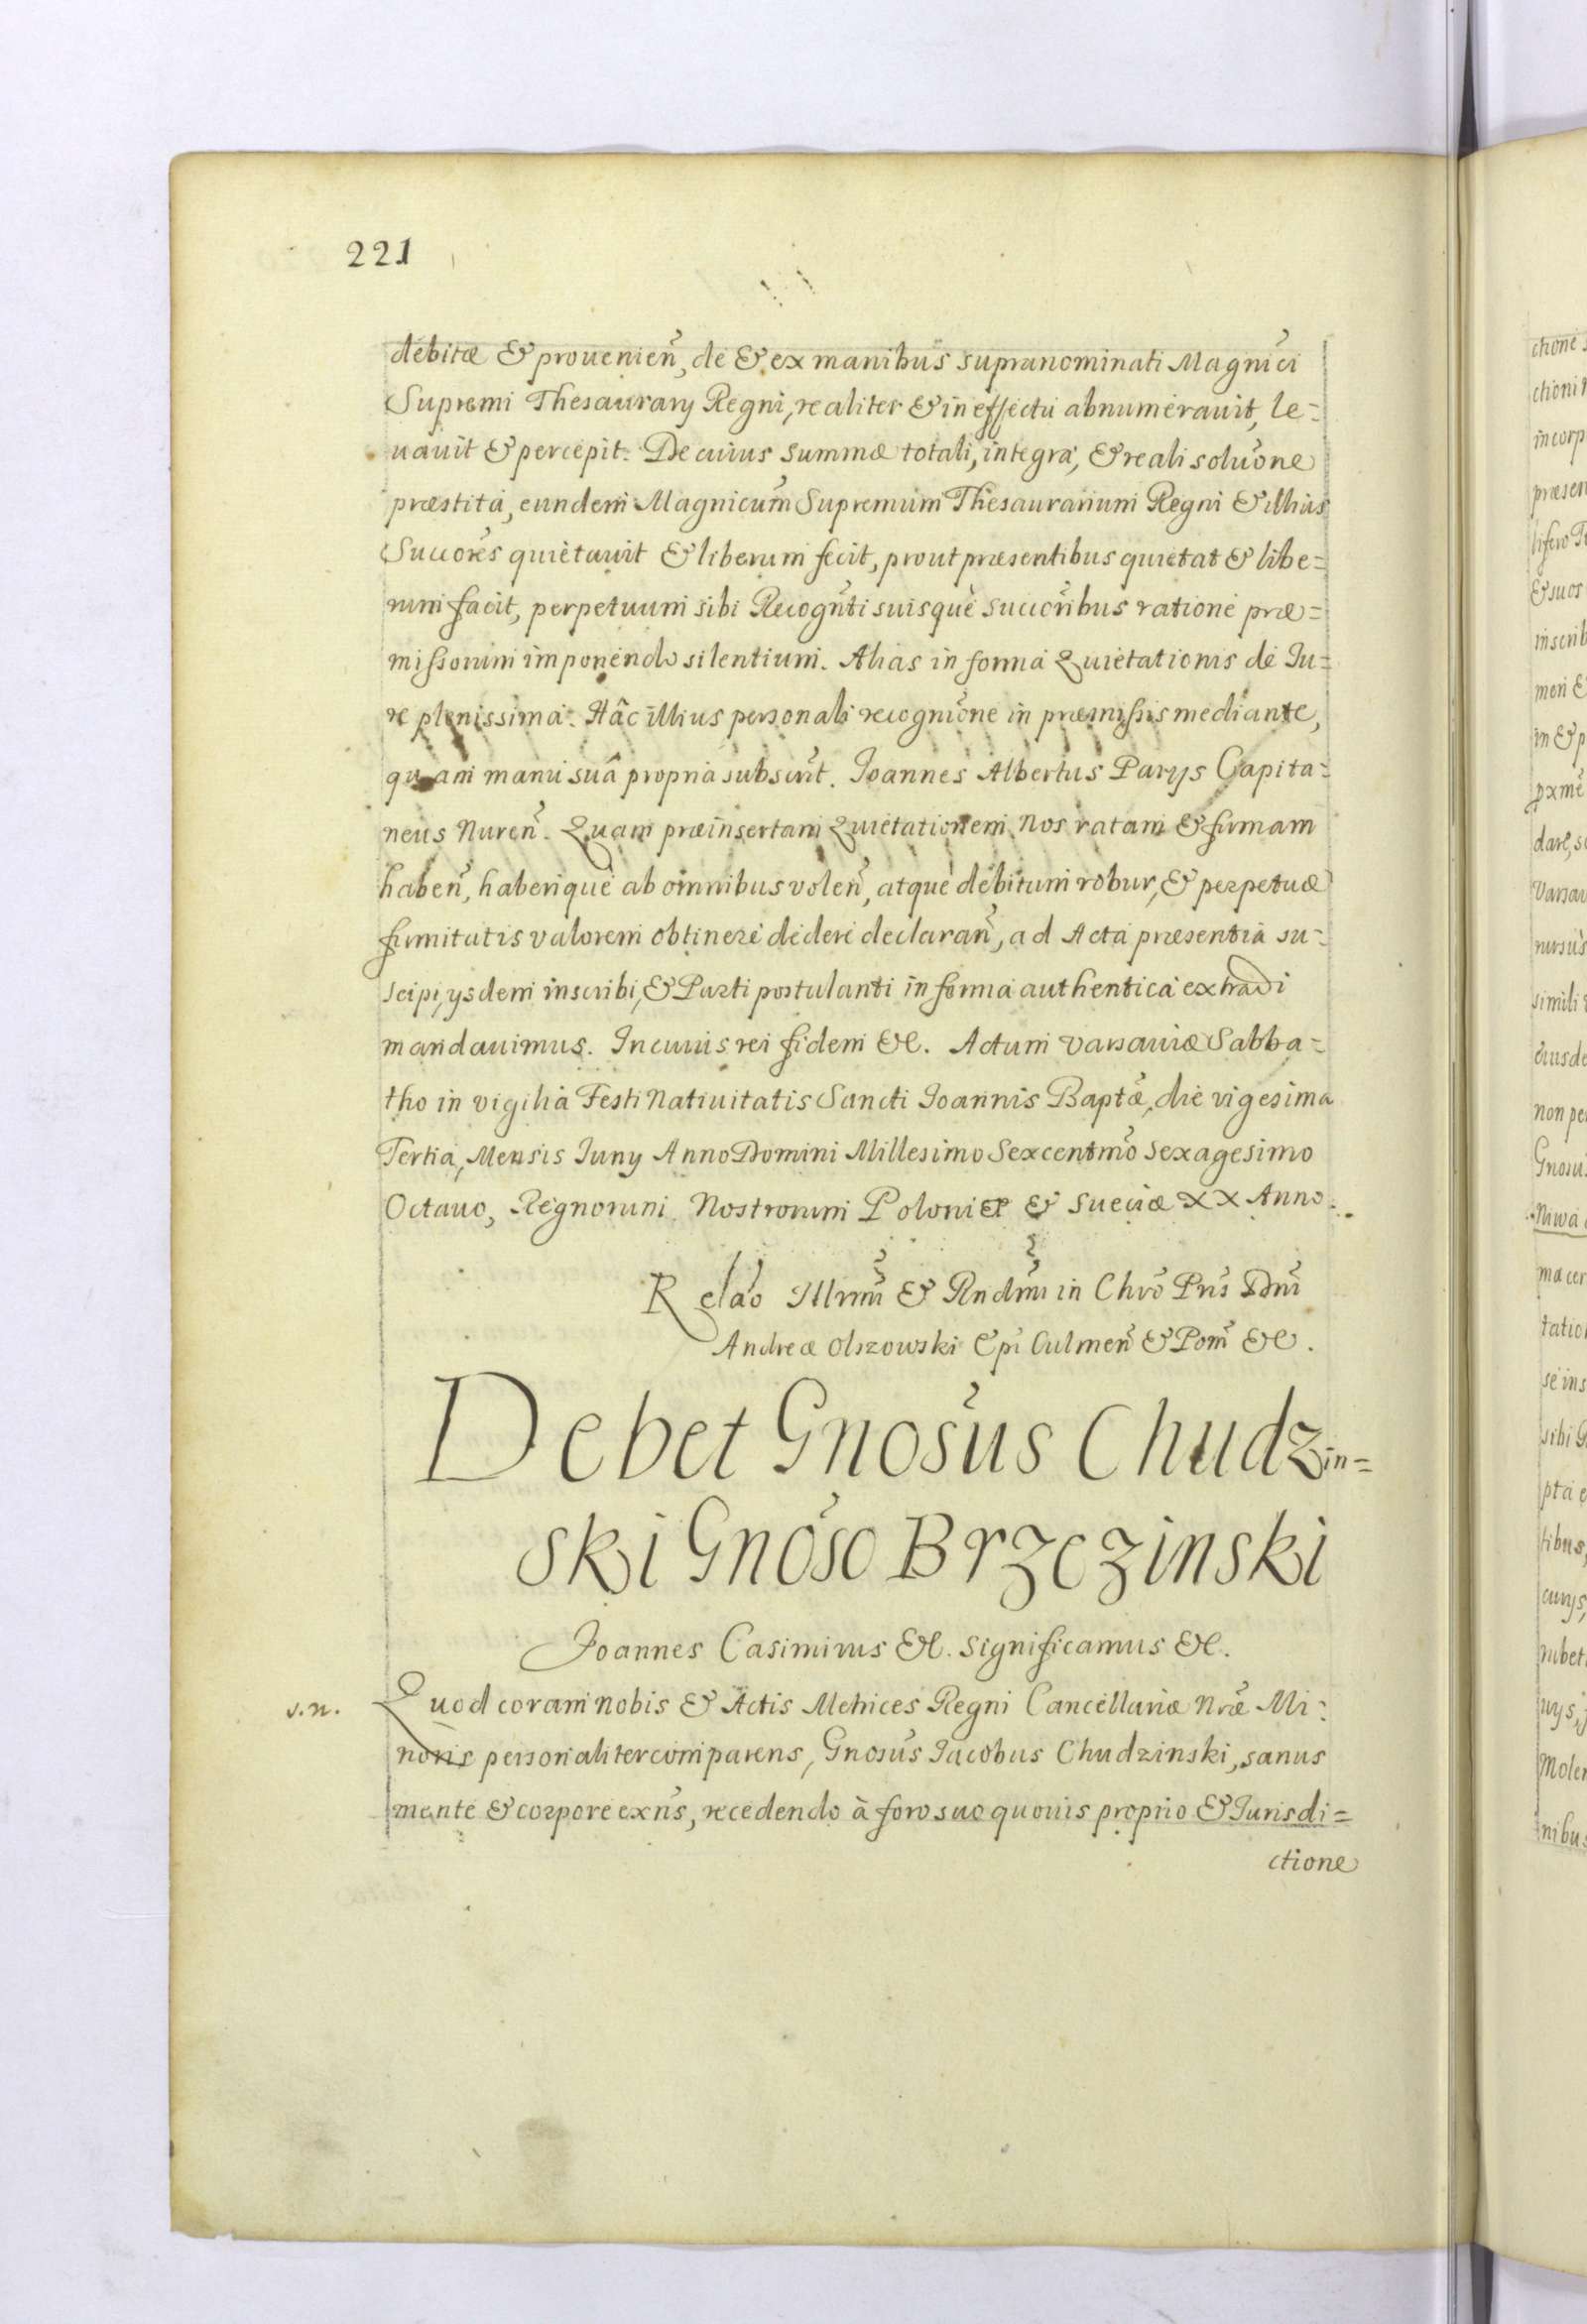 221
debitæ & prouenien̄, de & ex manibus supranominati Magnĩci
Supremi Thesaurarÿ Regni, realiter & in effectu abnumerauit, le=
uauit & percepit. De cuius summæ totali, integra, & reali solu͠one
præstita, eundem Magnicum̃ Supremum Thesaurarium Regni & illius
Succor̃es quietauit & liberum fecit, prout præsentibus quietat & libe=
rum facit, perpetuum sibi Recogñti suisque succor̃ibus ratione præ=
missorum imponendo silentium. Alias in forma Quietationis de Iu=
re plenissima. Hâc illius personali recogni͠one in præmissis mediante,
quam manu suâ propria subscr̃it. Joannes Albertus Parÿs Capita=
neus Nureñ. Quam præinsertam Quietationem Nos ratam & firmam
habeñ, haberique ab omnibus voleñ, atque debitum robur, & perpetuæ
firmitatis valorem obtinere debere declarañ, ad Acta præsentia su=
scipi, ÿsdem inscribi, & Parti postulanti in forma authentica extradi
mandauimus. In cuius rei fidem &c. Actum Varsauiæ Sabba=
tho in vigilia Festi Natiuitatis Sancti Joannis Baptæ̃, die vigesima
Tertia, Mensis Junÿ Anno Domini Millesimo Sexcentm̃o sexagesimo
Octauo, Regnorum Nostrorum Poloniæ & Sueciæ XX Anno.
Relão Illrm̃i & Rndm̃i in Chrõ Pr̃is Dñi
Andreæ Olszowski Ep̃i Culmeñ & Pom̃ &c.
Debet Gnosũs Chudzin=
ski Gnõso Brzezinski
Joannes Casimirus &c. significamus &c.
s.n. Quod coram nobis & Actis Metrices Regni Cancellariæ Nræ̃ Mi=
noris personaliter comparens, Gnosũs Jacobus Chudzinski, sanus
mente & corpore exñs, recedendo à foro suo quouis proprio & Jurisdi=
ctione